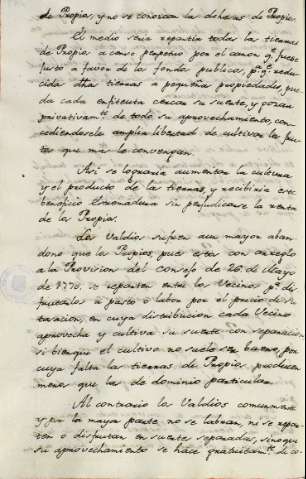 de Propios, y no se conozcan las dehesas de Propios.
El medio seria repartir todas las tierras
de Propios a censo perpetuo por el canon q.e fuese
justo a favor de los fondos publicos, p.a q.e redu-
cida dhas tierras a pequeñas propiedades, pue-
da cada enfiteuta cercar su suerte, y gozar
privativam.te de todo su aprovechamiento, con-
cediendosele amplia libertad de cultivar los fru-
tos que mas le convengan.
Asi se lograria aumentar la cultura
y el producto de las tierras, y recibiria este
beneficio Extremadura sin perjudicarse la renta
de los Propios.
Los Valdios sufren aun mayor aban-
dono que los Propios, pues estos con arreglo
a la Provision del Consejo de 26 de Mayo
de 1770. se reparten entre los Vecinos p.a dis-
frutarlos a pasto o labor por el precio de
tasacion, en cuya distribucion cada Vecino
aprovecha y cultiva su suerte con separacion
si bien que el cultivo no suele ser bueno, por
cuya falta las tierras de Propios producen
menos que las de dominio particular.
Al contrario los Valdios comunmente
y por la mayor parte no se labran, ni se repar-
ten o disfrutan en suertes separadas, sino que
su aprovechamiento se hace gratuitam.te de co-